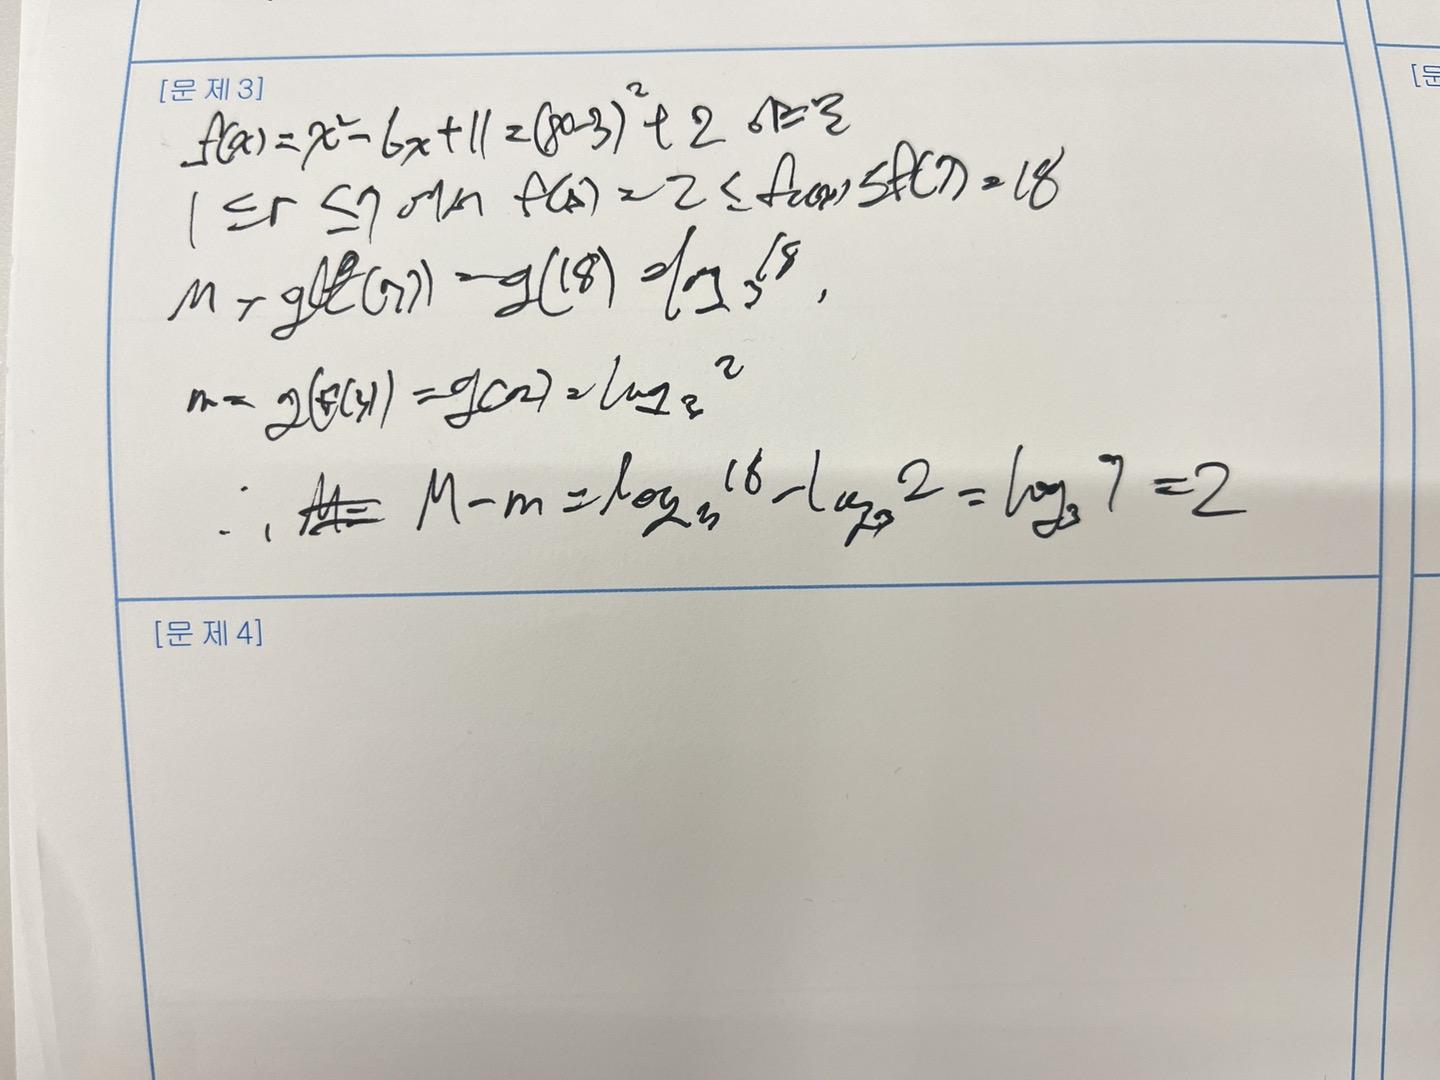 [문 제3]
f(x) = x² - 6x + 11 = (x-3)² + 2
1 ≤ x ≤ 7 에서 f(3) = 2 ≤ f(x) ≤ f(7) = 18
M = g(f(7)) = g(18) = log₃ 18,
m = g(f(3)) = g(2) = log₃ 2
∴ M - m = log₃ 18 - log₃ 2 = log₃ 9 = 2
[문 제4]